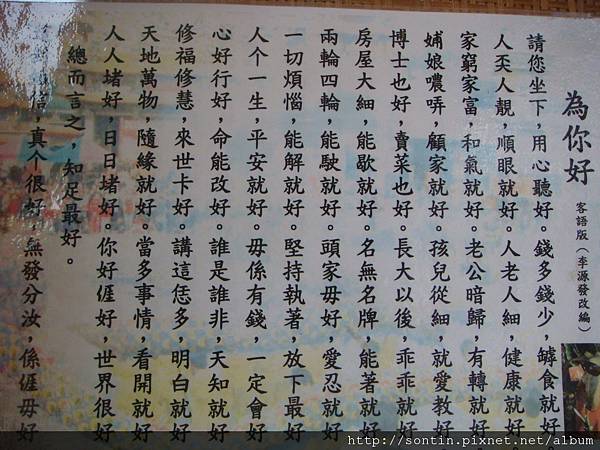 為你好
客語版(李源發改編)
請您坐下,用心聽好。錢多錢少,罅食就好。
人丕人靚,順眼就好。人老人細,健康就好。
家窮家富,和氣就好。老公暗歸,有轉就好。
娘噥哢,顧家就好。孩兒從細,就愛教好。
博士也好,賣菜也好。長大以後,乖乖就好。
房屋大細,能歇就好。名無名牌,能著就好
兩輪四輪,能駛就好。頭家毋好,愛忍就好
一切煩惱,能解就好。堅持執著,放下最好
人个一生,平安就好。毋係有錢,一定會好
心好行好,命能改好。誰是誰非,天知就好
修福修慧,來世卡好。講這恁多,明白就好
天地萬物,隨緣就好。當多事情,看開就好
人人堵好,日日堵好。你好𠊎好,世界很好
總而言之,知足最好。
信,真个很好,無發分汝,係𠊎毋好
http://sontin.pixnet.net/album